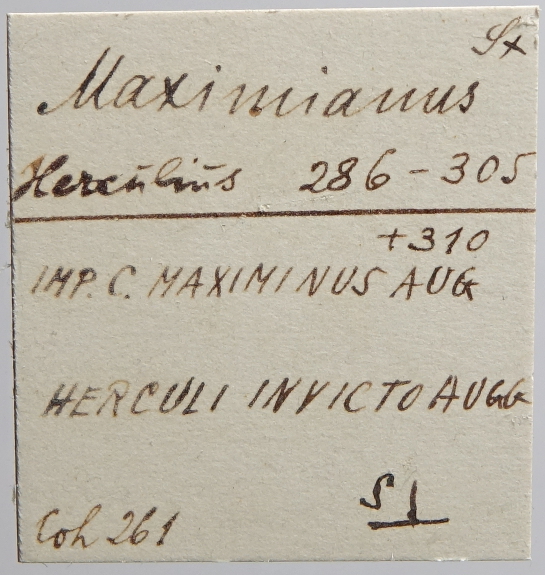 Sx
Maximianus
Herculius 286-305
+310
IMP. C. MAXIMINUS AUG
HERCULI INVICTO AUGG
Coh 261
S1